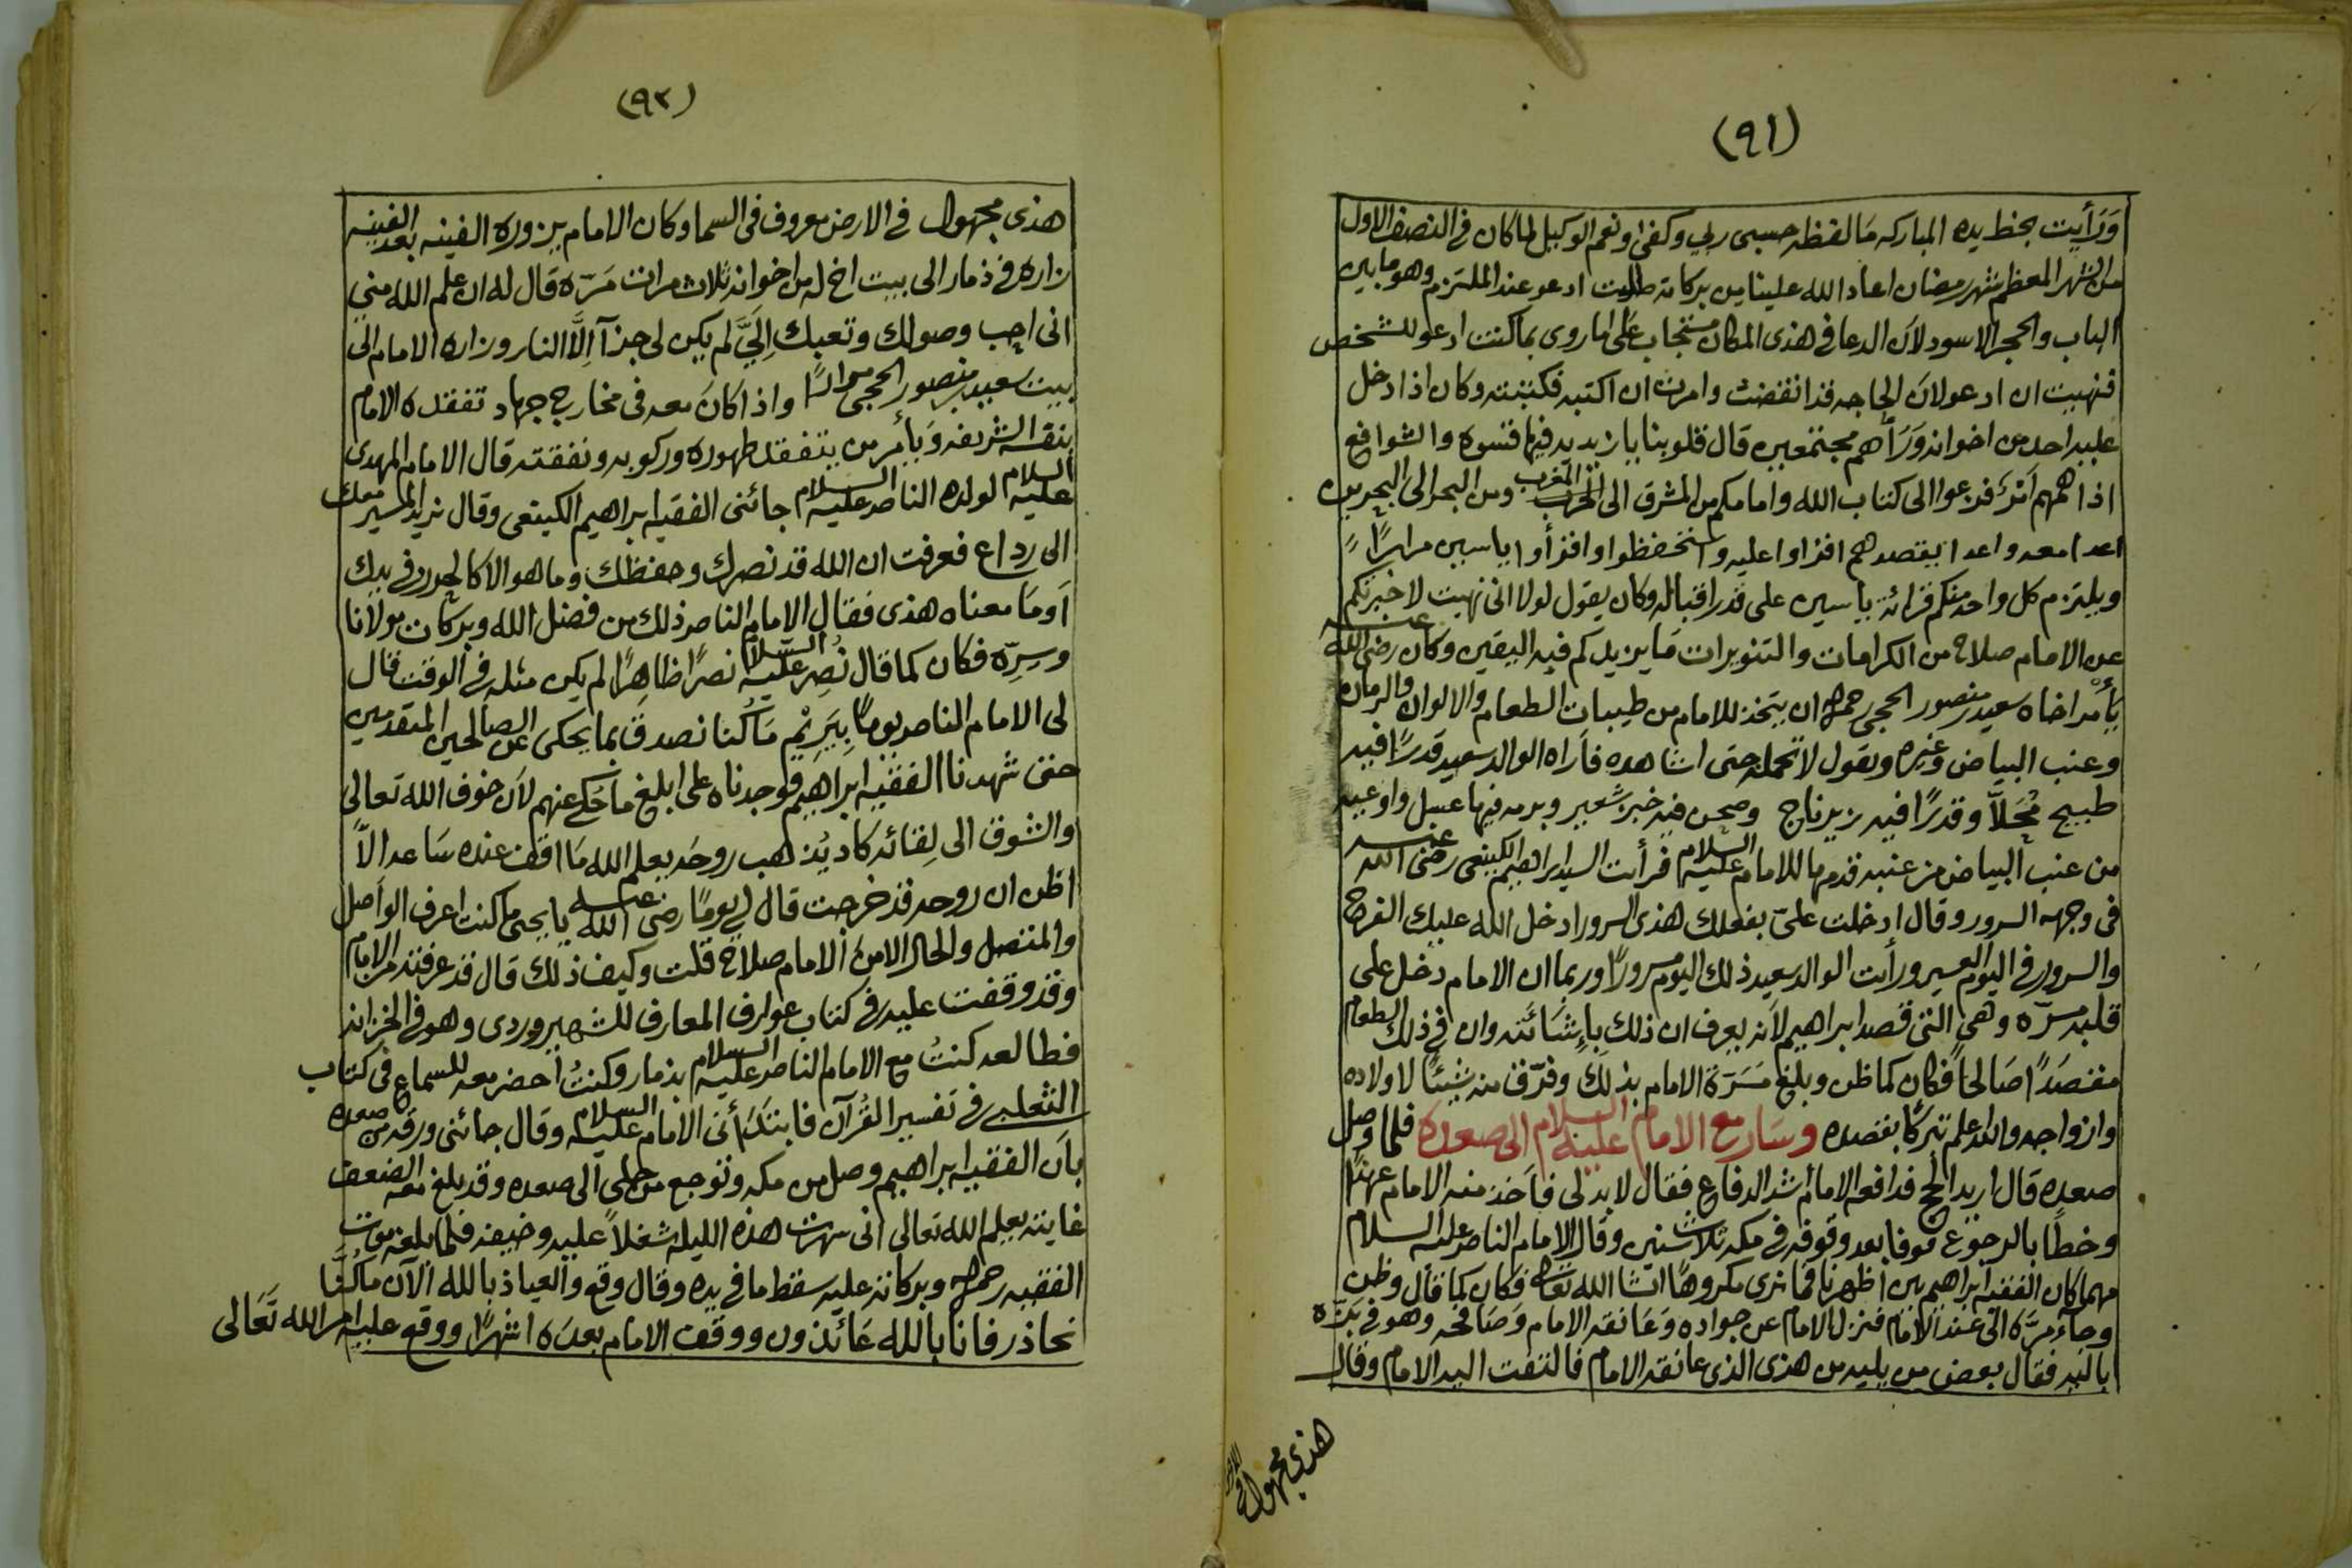 (٩١)
وَرَأيت بخط يده المباركه مَا لفظه حسبى ربي وكفىٰ ونعم الوكيل لما كان فى النصف الاول
من الشهر المعظم شهر رمضان اعاد الله علينا من بركاته طلبت ادعو عند الملتزم وهو ما بين
الباب والحجر الاسود لاَن الدعا فى هذى المكان مستجاب عَلى ما روى بما كنت ادعو للشخص
فنهيت ان ادعو لاَن الحاجه قد انقضت وامرت ان اكتبه فكتبته وكان اذا دخل
عليه احد من اخوانه وَرَأهم مجتمعين قال قلوبنا يا زيديه فيها قسوه والشوافع
اذا همهم امْرٌ فزعوا الى كتاب الله وامامكم من المشرق الى المغرب ومن البحر الى البحرين
اعدا معه واعدا يقصدهم افزاوا عليه واستحفظوا وافزأوا ياسين مرارًا
ويلتزم كل واحد منكم قرائة ياسين على قدر اقباله وكان يقول لولا انى نهيت لاخبرتكم
عن الامام صلاح من الكرامات والتنويرات مَا يزيدكم فيه اليقين وكان رضى الله عنه
يَأمر اخاه سعيد بن منصور الحجى رحمه الله ان يتخذ للامام من طيبات الطعام والالوان والرمان
وعنب البياض وغيره ويقول لا تحمله حتى اشاهده فأراه الوالد سعيد قدرًا فيه
طبيخ مُحَلاًّ وقدرًا فيه زيرباج وصحن فيه خبز شعير وبرمه فيها عسل واوعيه
من عنب البياض من عنبه قدمها للامام عليه السلام فرأيت السيد ابراهيم الكينعى رضى الله عنه
فى وجهه السرور وقال ادخلت علىّ بفعلك هذى السرور ادخل الله عليك الفرح
والسرور فى اليوم العسير ورأيت الوالد سعيد ذلك اليوم مسرورًا وربما ان الامام دخل على
قلبه مسرّه وهى التى قصد ابراهيم لاَنه يعرف ان ذلك بِإشَائته وان فى ذلك الطعام
مقصَدًا صَالحاً فكان كما ظن وبلغ مَسَرّة الامام بذلكَ وفرّق منه شيئًا لاولاده
وازواجه والله اعلم تبركًا بقصده وسَار مع الامام عليه السلام الى صعده فلما وصل
صعده قال اريد الحج فدافعه الامام أشد الدفاع فقال لا بد لى فأخذ منه الامام عهدًا
وخطًّا بالرجوع فوفا بعد وقوفه فى مكه ثلاث سنين وقال الامام الناصر عليه السلام
مهما كان الفقيه ابراهيم بين اظهرنا فما نرى مكروهًا انشا الله تعالى فكان كما قال وظن
وجاء مرَّه الى عند الامام فنزل الامام عن جواده وَعَانقه الامام وَصَافحه وهو فى بَزّه
باليه فقال بعض من يليه من هذى الذى عانقه الامام فالتفت اليه الامام وقال
هذى مجهول فى الارض
(٩٢)
هذى مجهول فى الارض معروف فى السما وكان الامام يزوره الفينه بعد الفينه
زاره فى ذمار الى بيت اخ له من اخوانه ثلاث مرات مَرّه قال له ان علم الله منى
انى احب وصولك وتعبك اِلَيَّ لم يكن لى جزآ اِلاَّ النار وزاره الامام الى
بيت سعيد بن منصور الحجى مرارًا واذا كانَ معه فى مخارج جهاد تفقده الامام
بنفسه الشريفه وَيأمر من يتفقد طهوره وركوبه ونفقته قال الامام المهدى
عليه السلام لولده الناصر عليه السلام جائنى الفقيه ابراهيم الكينعى وقال نريد المسير معك
الى رداع فعرفت ان الله قد نصرك وحفظك وما هو الا كالحرز فى يدك
اَو مَا معناه هذى فقال الامام الناصر ذلك من فضل الله وبركات مولانا
وسِرّه فكان كما قال نُصِر عليه السلام نصرًا ظاهِرًا لم يكن مثله فى الوقت قال
لى الامام الناصر يومًا بِيَرِيْم مَا كُنا نصدق بما يحكى عن الصالحين المتقدمين
حتى شهدنا الفقيه ابراهيم فوجدناه على ابلغ ما حُكِى عنهم لاَن خوف الله تعالى
والشوق الى لِقائه كاد يُذهب روحَه يعلم الله مَا اقف عنده سَاعه الاّ
اظن ان روحه قد خرجت قال لي يومًا رضى الله عنه يا يحيى ما كنت اعرف الواصل
والمتصل والحال الا من الامام صلاح قلت وكيف ذلك قال قد عرفته من الامام
وقد وقفت عليه فى كتاب عوارف المعارف للشهبروردى وهو فى الخزانه
فطالعه كنتُ مع الامام الناصر عليه السلام بذمار وكنتُ أحضر معه للسماع فى كتاب
الثعلبي فى تفسير القُرآن فابتدَأنى الامام عليه السلام وقال جائنى ورقه من صعده
باَن الفقيه ابراهيم وصل من مكه وتوجع من حلى الى صعده وقد بلغ معه الضعف
غايته يعلم الله تعالى انى سهرت هذه الليله شغلاً عليه وخيفه فلما بلغه موت
الفقيه رحمه الله وبركاته عليه سقط ما فى يده وقال وقع والعياذ بالله الآن ما كُنَّا
نحاذر فانا بالله عَائذون ووقف الامام بعدَه اشهرًا ووقع عليه امر الله تَعَالى